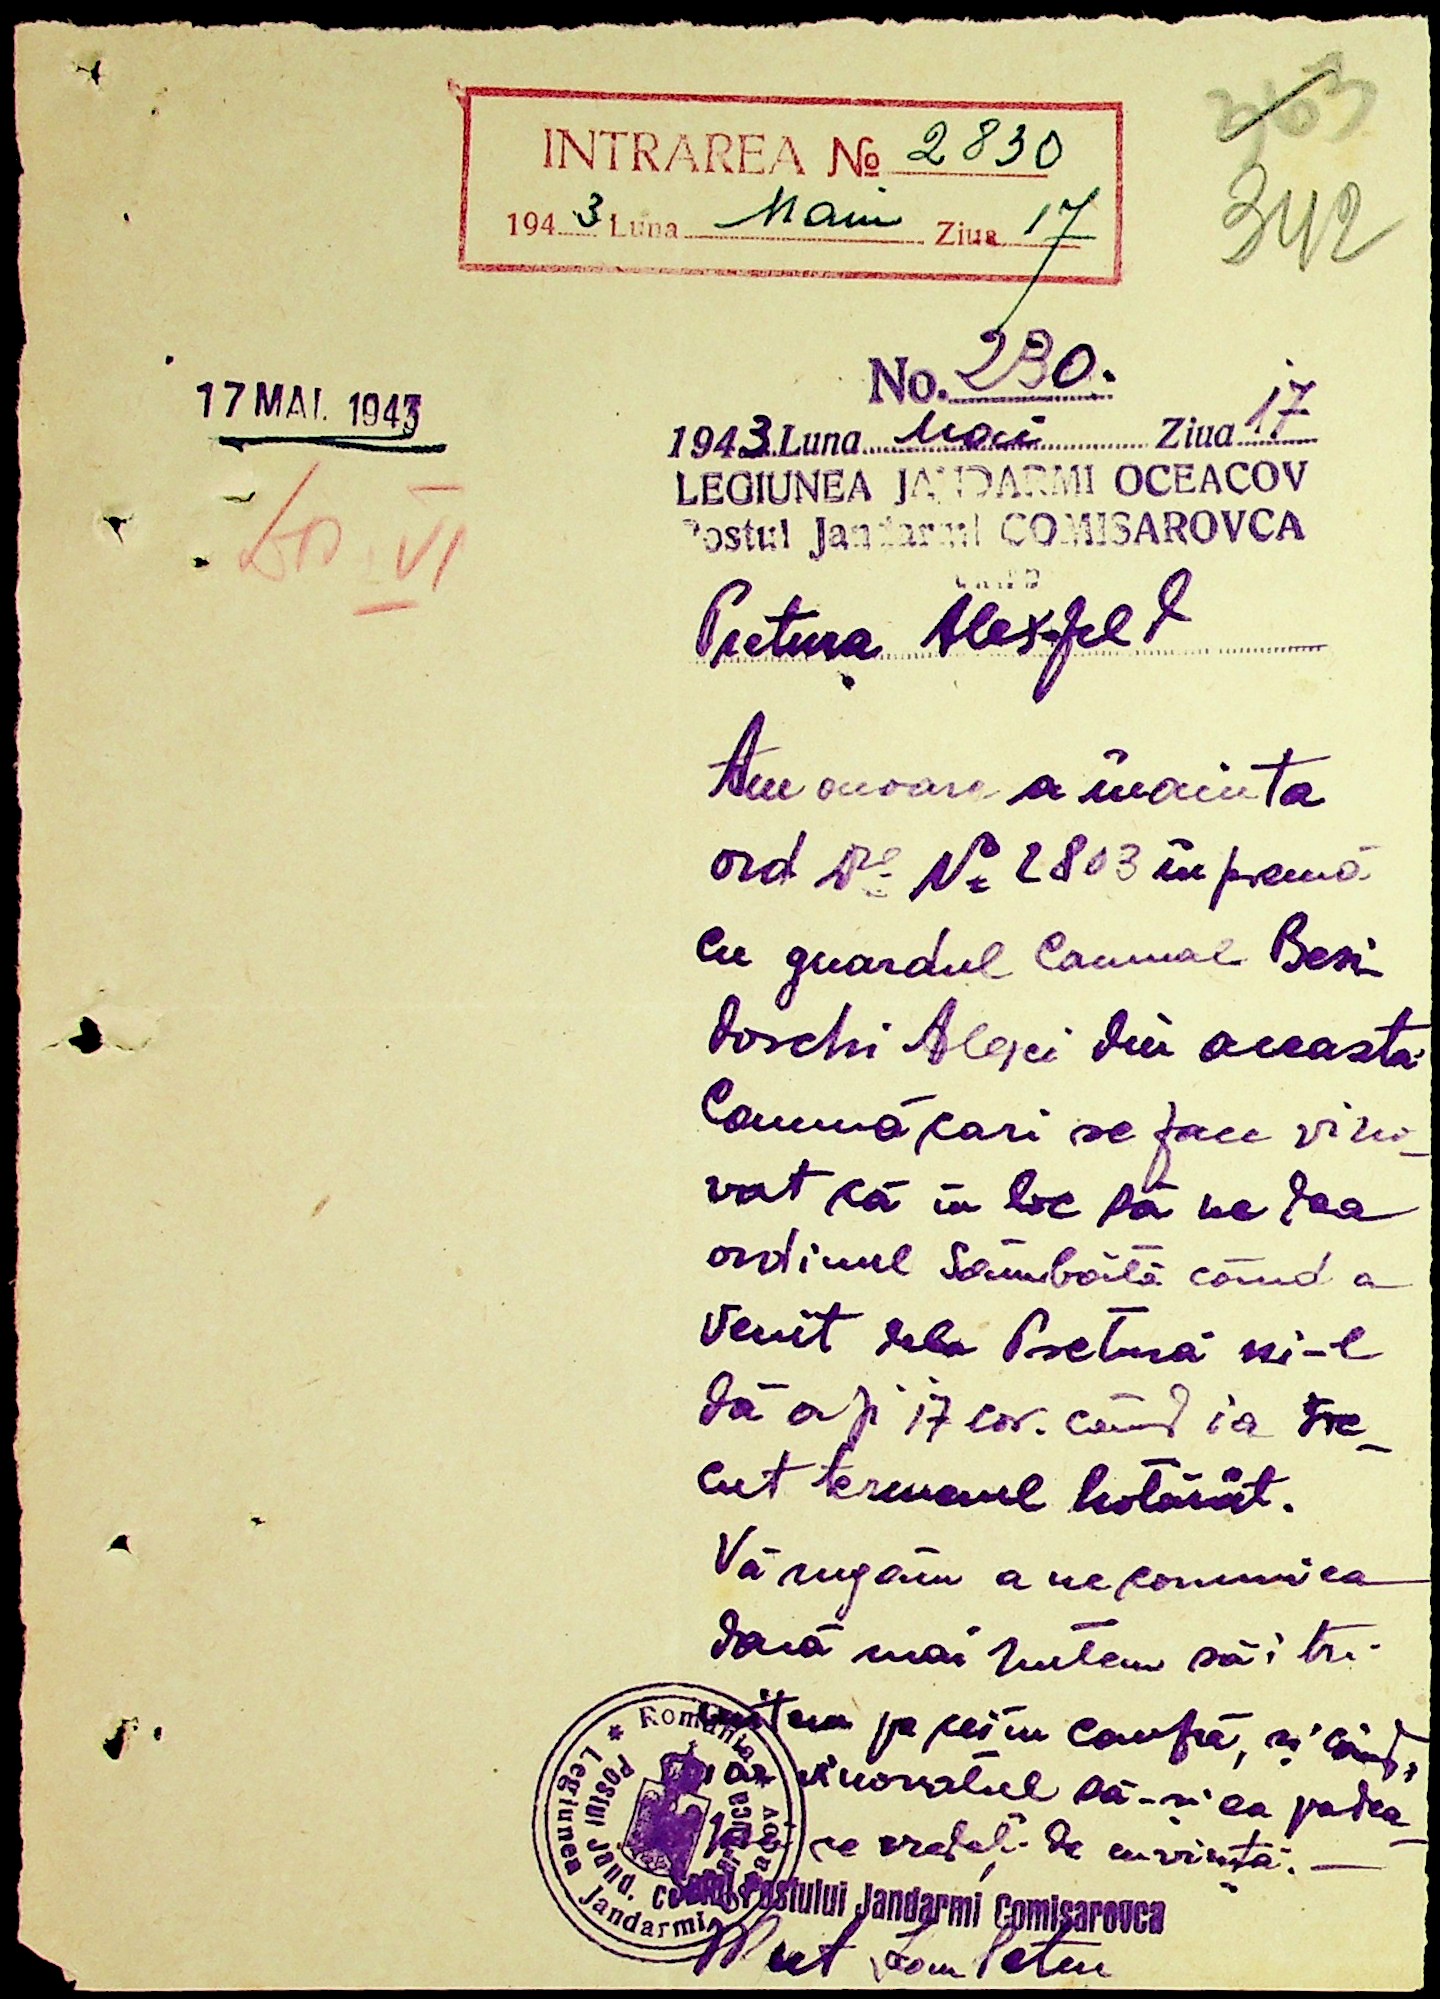 363
342
INTRAREA No 2830
1943 Luna Maiu Ziua 17
17 MAI. 1943
No. 230.
1943 Luna Mai Ziua 17
LEGIUNEA JANDARMI OCEACOV
Postul Jandarmi COMISAROVCA
către
Pretura Alexfeld
Am onoare a înainta
ord Dv No 2803 împreună
cu guardul Comunal Besi
doschi Alexei din această
Comună cari se face vino-
vat că în loc să ne dea
ordinul Sâmbătă când a
venit dela Pretură ni-l
dă azi 17 cor. când ia tre-
cut termenul hotărât.
Vă rugăm a ne comunica
dacă mai putem să-i tri-
mitem pe cei în cauză, și când,
iar vinovatul să-și ia pedea-
psa ce vredeți de cuviință. —
România
Legiunea Jandarmi Oceacov
Postul Jand. Comisarovca
Șeful Postului Jandarmi Comisarovca
Petru